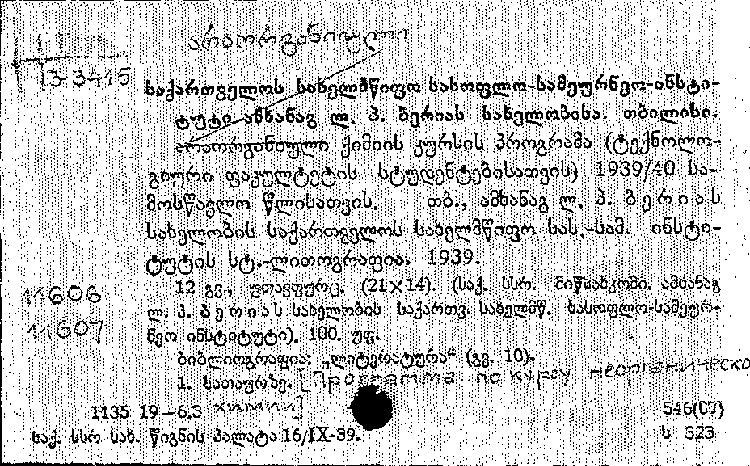 არაორგანიული
13-3415
საქართველოს სახელმწიფო სასოფლო-სამეურნეო-ინსტი-
ტუტი ამხანაგ ლ. პ. ბერიას სახელობისა. თბილისი.
არაორგანიული ქიმიის კურსის პროგრამა (ტექნოლო-
გიური ფაკულტეტის სტუდენტებისათვის) 1939/40 სა-
მოსწავლო წლისათვის. თბ., ამხანაგ ლ. პ. ბერიას
სახელობის საქართველოს სახელმწიფო სას.-სამ. ინსტი-
ტუტის სტ.-ლითოგრაფია, 1939.
11606 12 გვ., უთავფურც. (21×14). (საქ. სსრ. მიწსახკომი. ამხანაგ
ლ. პ. ბერიას სახელობის საქართვ. სახელმწ. სასოფლო-სამეურ-
11607 ნეო ინსტიტუტი). 100. უფ.
ბიბლიოგრაფია: „ლიტერატურა“ (გვ. 10).
1. სათაურზე. [Программа по курсу неорганическо
1135 19—6.3 химии] 546(07)
საქ. სსრ სახ. წიგნის პალატა 16/IX-39. ს 323